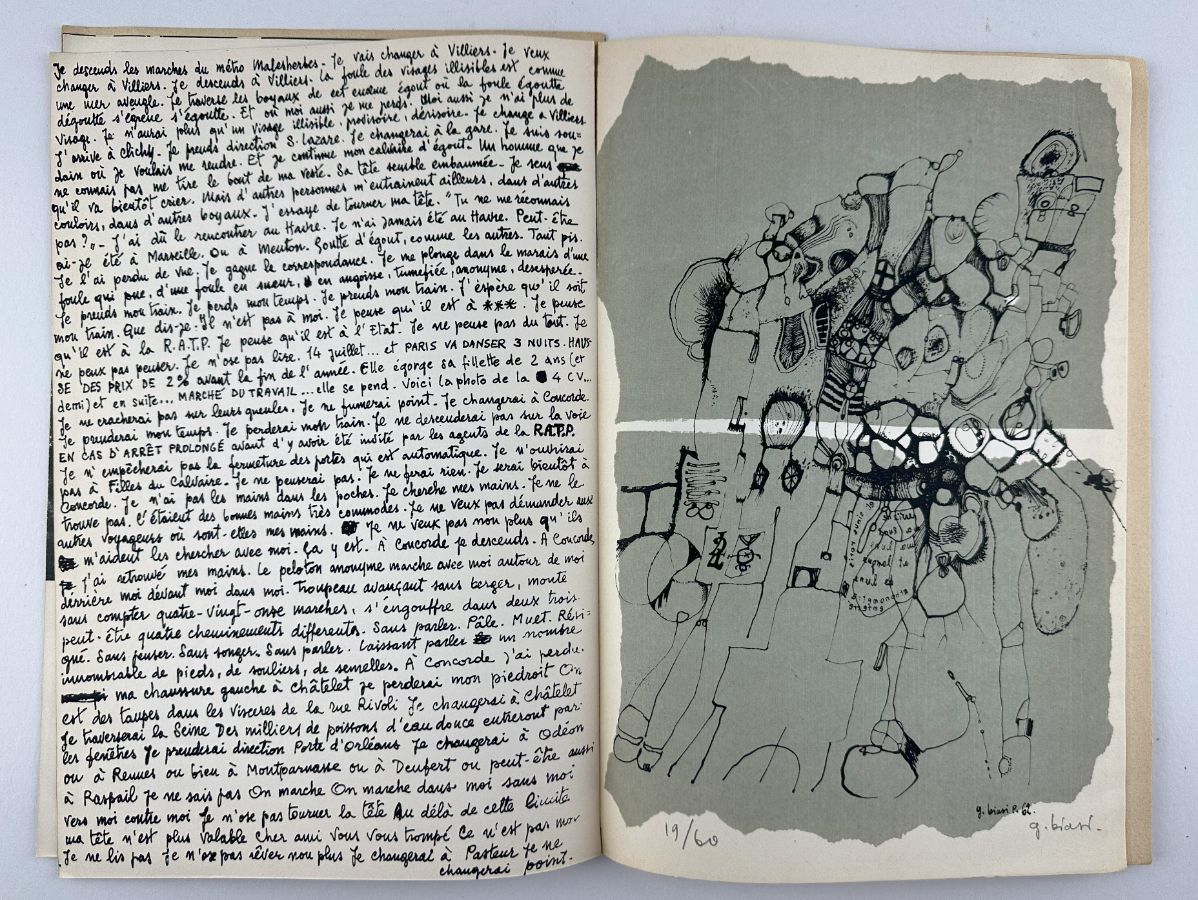 Je descends les marches du métro Malesherbes - Je vais changer à Villiers. Je veux
changer à Villiers. Je descends à Villiers. La foule des visages illisibles est comme
une mer aveugle. Je traverse les boyaux de cet énorme égout où la foule égoutte
dégoutte s'égoutte. Et où moi aussi je me perds. Moi aussi je n'ai plus de
visage. Je n'aurai plus qu'un visage illisible, provisoire, dérisoire. Je change à Villiers
J'arrive à Clichy. Je prends direction S. Lazare. Je changerai à la gare. Je suis sou=
dain où je voulais me rendre. Et je continue mon calvaire d'égout. Un homme que je
ne connais pas me tire le bout de ma veste. Sa tête semble embaumée. Je sens
qu'il va bientôt crier. Mais d'autres personnes m'entrainent ailleurs, dans d'autres
couloirs, dans d'autres boyaux. J'essaye de tourner ma tête. "Tu ne me reconnais
pas ?" - J'ai dû le rencontrer au Havre. Je n'ai jamais été au Havre. Peut-être
ai-je été à Marseille. Ou à Menton. Goutte d'égout, comme les autres. Tant pis.
Je l'ai perdu de vue. Je gagne la correspondance. Je me plonge dans le marais d'une
foule qui pue, d'une foule en sueur, en angoisse, tumefiée, anonyme, desesperée.
Je prends mon train. Je perds mon temps. Je prends mon train. J'éspère qu'il soit
mon train. Que dis-je. Il n'est pas à moi. Je pense qu'il est à ***. Je pense
qu'il est à la R.A.T.P. Je pense qu'il est à l'Etat. Je ne pense pas du tout. Je
ne peux pas penser. Je n'ose pas lire. 14 Juillet... et PARIS VA DANSER 3 NUITS. HAUS-
SE DES PRIX DE 2% avant la fin de l'année. Elle égorge sa fillette de 2 ans (et
demi) et en suite... MARCHÉ DU TRAVAIL... elle se pend. Voici la photo de la 4 CV...
Je ne cracherai pas sur leurs gueules. Je ne fumerai point. Je changerai à Concorde.
Je prenderai mon temps. Je perderai mon train. Je ne descenderai pas sur la voie
EN CAS D'ARRÊT PROLONGÉ avant d'y avoir été invité par les agents de la R.A.T.P.
Je n'empêcherai pas la fermeture des portes qui est automatique. Je n'ouvrirai
pas à Filles du Calvaire. Je ne penserai pas. Je ne ferai rien. Je serai bientôt à
Concorde. Je n'ai pas les mains dans les poches. Je cherche mes mains. Je ne le
trouve pas. C'étaient des bonnes mains très commodes. Je ne veux pas démander aux
autres voyageurs où sont-elles mes mains. Je ne veux pas non plus qu'ils
m'aident les chercher avec moi. Ça y est. À Concorde je descends. À Concorde,
j'ai retrouvé mes mains. Le peloton anonyme marche avec moi autour de moi
dérrière moi dévant moi dans moi. Troupeau avançant sans berger, monte
sans compter quatre-vingt-onze marches, s'éngouffre dans deux trois
peut-être quatre cheminements differents. Sans parler. Pâle. Muet. Rési=
gné. Sans penser. Sans songer. Sans parler. Laissant parler un nombre
innombrable de pieds, de souliers, de semelles. À Concorde j'ai perdu
ma chaussure gauche à Châtelet je perderai mon pied droit On
est des taupes dans les visceres de la rue Rivoli Je changerai à Châtelet
Je traverserai la Seine Des milliers de poissons d'eau douce entreront par
les fenêtres Je prenderai direction Porte d'Orléans Je changerai à Odéon
ou à Rennes ou bien à Montparnasse ou à Denfert ou peut-être aussi
à Raspail Je ne sais pas On marche On marche dans moi sans moi
vers moi contre moi Je n'ose pas tourner la tête Au délà de cette limite
ma tête n'est plus valable Cher ami vous vous trompé Ce n'est pas moi
Je ne lis pas Je n'ose pas rêver non plus Je changerai à Pasteur Je ne
changerai point.
g. biasi P. 62.
19/60
g. biasi.